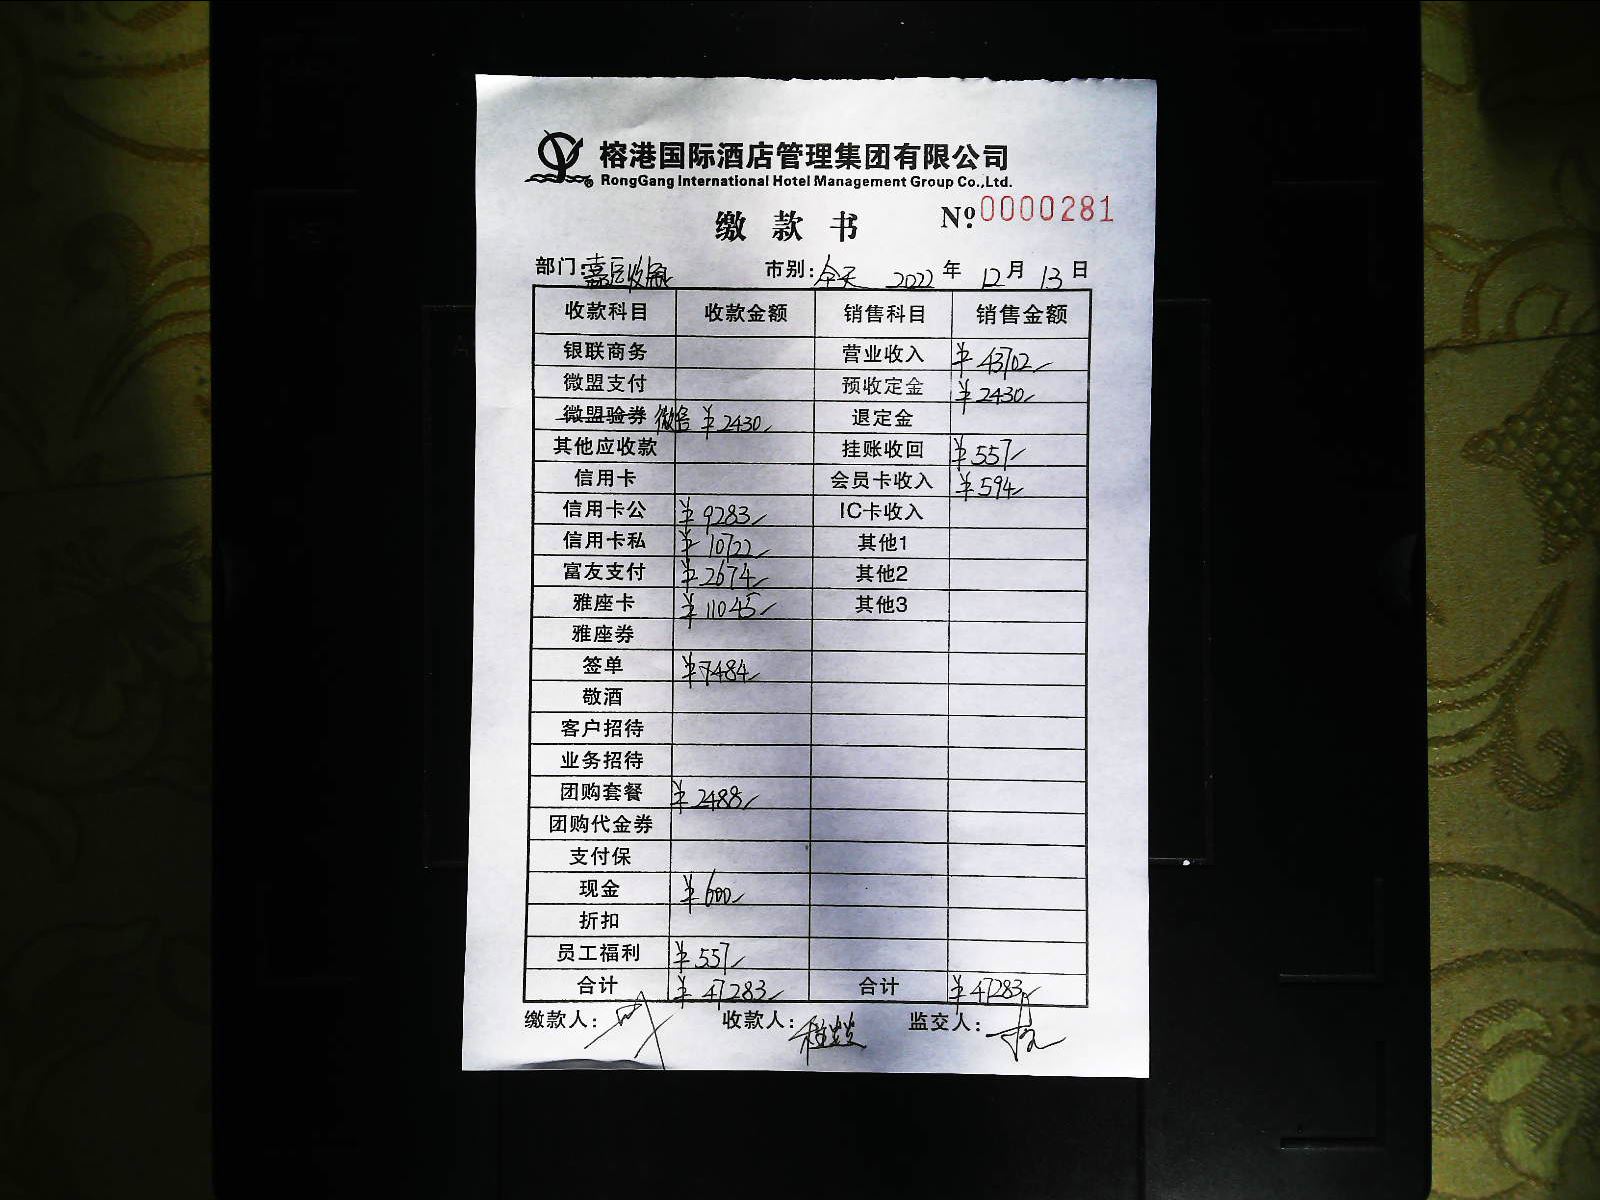 榕港国际酒店管理集团有限公司
RongGang International Hotel Management Group Co.,Ltd.
缴款书 Nº:0000281
部门: 市别:今天 2022年12月13日
收款科目 收款金额 销售科目 销售金额
银联商务 营业收入 ¥43702
微盟支付 预收定金 ¥2430
微盟验券 微售 ¥2430 退定金
其他应收款 挂账收回 ¥557
信用卡 会员卡收入 ¥594
信用卡公 ¥9283 IC卡收入
信用卡私 ¥10722 其他1
富友支付 ¥2674 其他2
雅座卡 ¥11045 其他3
雅座券
签单 ¥7484
敬酒
客户招待
业务招待
团购套餐 ¥2488
团购代金券
支付保
现金 ¥600
折扣
员工福利 ¥557
合计 ¥47283 合计 ¥47283
缴款人: 收款人: 监交人: